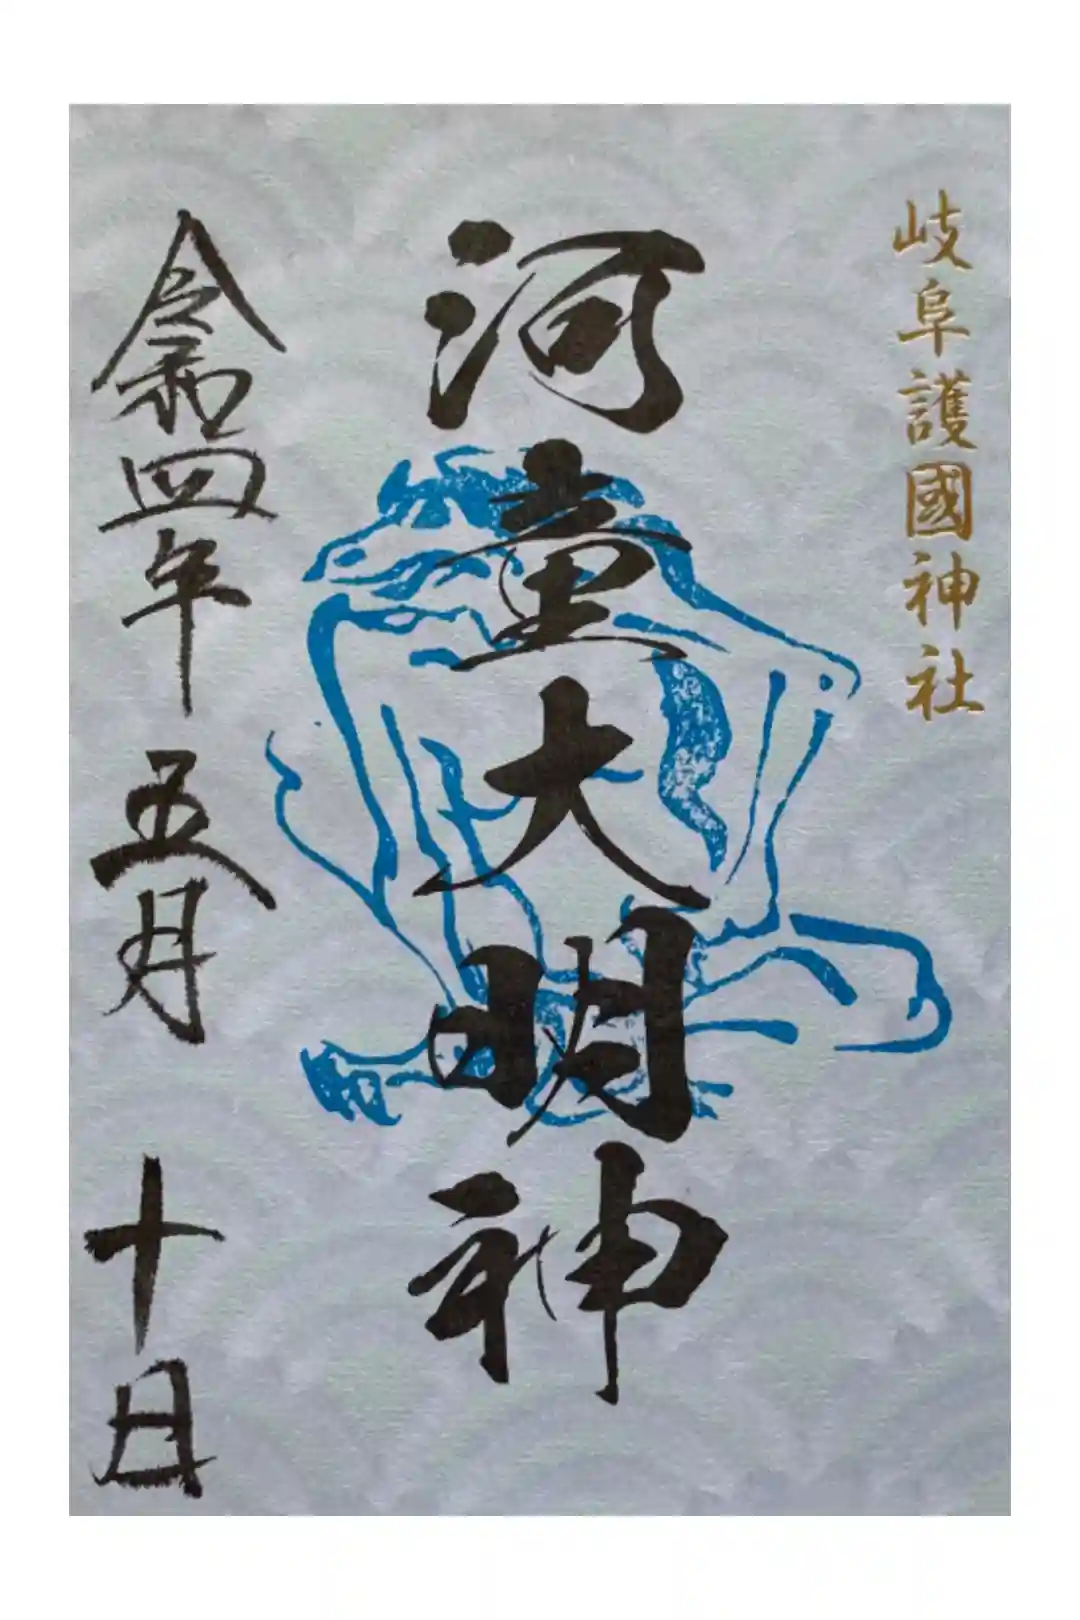 岐阜護國神社
河童大明神
令和四年五月十日